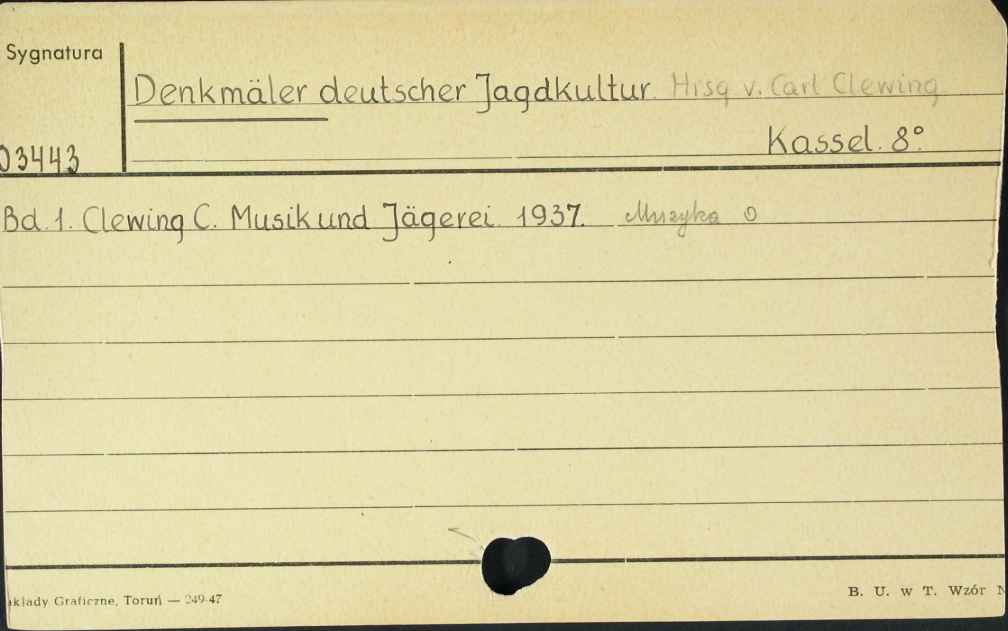 Sygnatura
Denkmäler deutscher Jagdkultur Hrsg v. Carl Clewing
Kassel. 8°
03443
Bd. 1. Clewing C. Musik und Jägerei. 1937. Muzyka O
kłady Graficzne, Toruń — 249-47
B. U. w T. Wzór N